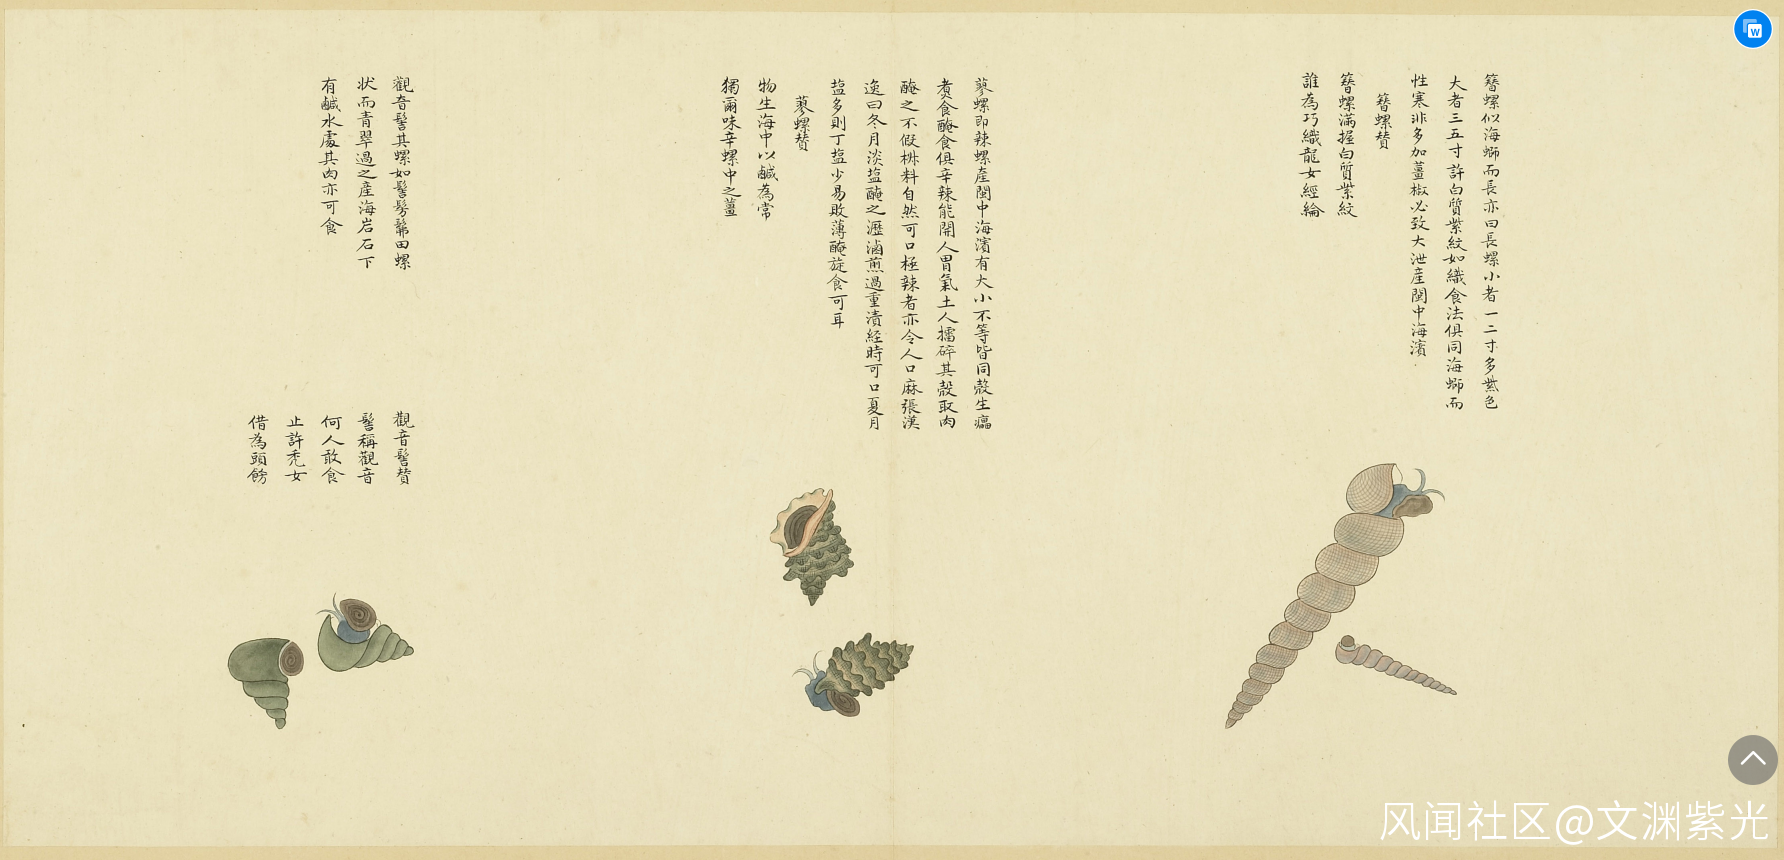 簪螺似海螄而長亦曰長螺小者一二寸多紫色
大者三五寸許白質紫紋如織食法俱同海螄而
性寒非多加薑椒必致大泄産閩中海濱
簪螺賛
簪螺滿握白質紫紋
誰為巧織龍女經綸
蓼螺即辣螺産閩中海濱有大小不等皆同殼生癟
煑食醃食俱辛辣能開人胃氣土人擂碎其殼取肉
醃之不假椒料自然可口極辣者亦令人口麻張漢
逸曰冬月淡塩醃之瀝滷煎過重漬経時可口夏月
塩多則丁塩少易敗薄醃旋食可耳
蓼螺賛
物生海中以鹹為常
獨爾味辛螺中之薑
觀音髻其螺如髻髣髴田螺
状而青翠過之産海岩石下
有鹹水處其肉亦可食
觀音髻賛
髻稱觀音
何人敢食
止許禿女
借為頭餙
风闻社区@文渊紫光